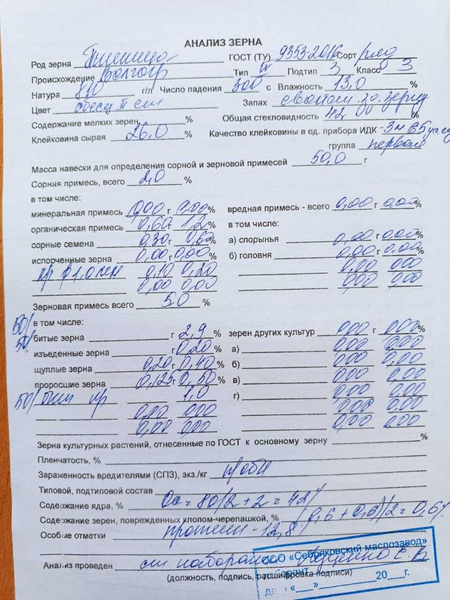 АНАЛИЗ ЗЕРНА
Род зерна Пшеница ГОСТ (ТУ) 9353-2016 Сорт
Происхождение Волгогр Тип IV Подтип 3 Класс 3
Натура 810 г/л Число падения 300 с Влажность 13,0 %
Цвет Запах свойст. зд. зерну
Содержание мелких зерен % Общая стекловидность 42 %
Клейковина сырая 26,0 % Качество клейковины в ед. прибора ИДК -
группа первая
Масса навески для определения сорной и зерновой примесей 50,0 г
Сорная примесь, всего 2,0 %
в том числе:
минеральная примесь 0,00 г 0,00 % вредная примесь - всего 0,00 г 0,00 %
органическая примесь 0,60 1,2 в том числе:
сорные семена 0,30 г 0,60 а) спорынья 0,00 г 0,00 %
испорченные зерна 0,00 г 0,00 % б) головня 0,00 г 0,00 %
0,10 0,20 0,00 0,00
0,00 0,00 0,00 0,00
Зерновая примесь всего 5,0 %
50/ в том числе:
50/ битые зерна г 2,9 % зерен других культур 0,00 г 0,00 %
изъеденные зерна г 0,20 а) 0,00 0,00
щуплые зерна 0,20 0,40 б) 0,00 0,00
проросшие зерна 0,25 0,50 в) 0,00 0,00
50/ 1,0 г) 0,00 0,00
0,00 0,00 0,00 0,00
0,00 0,00 0,00 0,00
Зерна культурных растений, отнесенные по ГОСТ к основному зерну %
Пленчатость, %
Зараженность вредителями (СПЗ), экз./кг н/обн
Типовой, подтиповой состав
Содержание ядра, % Ос = 80/2 + 2 = 42%
Содержание зерен, поврежденных клопом-черепашкой, % (0,6 + 0,6)/2 = 0,6%
Особые отметки протеин - 12,8
Анализ проведен
(должность, подпись, расшифровка подписи)
ООО «Себряковский маслозавод»
«___» ______ 20__г.